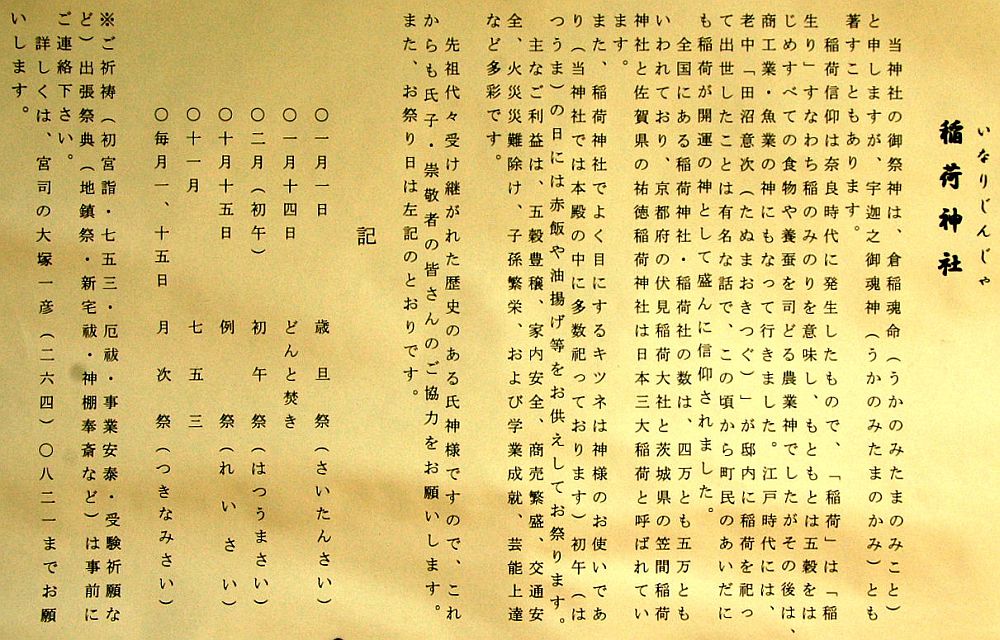 いなりじんじゃ
稲荷神社
当神社の御祭神は、倉稲魂命（うかのみたまのみこと）
と申しますが、宇迦之御魂神（うかのみたまのかみ）とも
著すこともあります。
稲荷信仰は奈良時代に発生したもので、「稲荷」は「稲
生り」すなわち稲のみのりを意味し、もともとは五穀をは
じめすべての食物や養蚕を司どる農業神でしたがその後は、
商工業・魚業の神にもなって行きました。江戸時代には、
老中「田沼意次（たぬまおきつぐ）」が邸内に稲荷を祀っ
て出世したことは有名な話で、この頃から町民のあいだに
も稲荷が開運の神として盛んに信仰されました。
全国にある稲荷神社・稲荷社の数は、四万とも五万とも
いわれており、京都府の伏見稲荷大社と茨城県の笠間稲荷
神社と佐賀県の祐徳稲荷神社は日本三大稲荷と呼ばれてい
ます。
また、稲荷神社でよく目にするキツネは神様のお使いであ
り（当神社では本殿の中に多数祀っております）初午（は
つうま）の日には赤飯や油揚げ等をお供えしてお祭ります。
主なご利益は、五穀豊穣、家内安全、商売繁盛、交通安
全、火災災難除け、子孫繁栄、および学業成就、芸能上達
など多彩です。
先祖代々受け継がれた歴史のある氏神様ですので、これ
からも氏子・崇敬者の皆さんのご協力をお願いします。
また、お祭り日は左記のとおりです。
記
〇一月一日　歳旦祭（さいたんさい）
〇一月十四日　どんと焚き
〇二月（初午）　初午祭（はつうまさい）
〇十月十五日　例祭（れいさい）
〇十一月　七五三
〇毎月一、十五日　月次祭（つきなみさい）
※ご祈祷（初宮詣・七五三・厄祓・事業安泰・受験祈願な
ど）出張祭典（地鎮祭・新宅祓・神棚奉斎など）は事前に
ご連絡下さい。
詳しくは、宮司の大塚一彦（二六四）〇八二一までお願
いします。